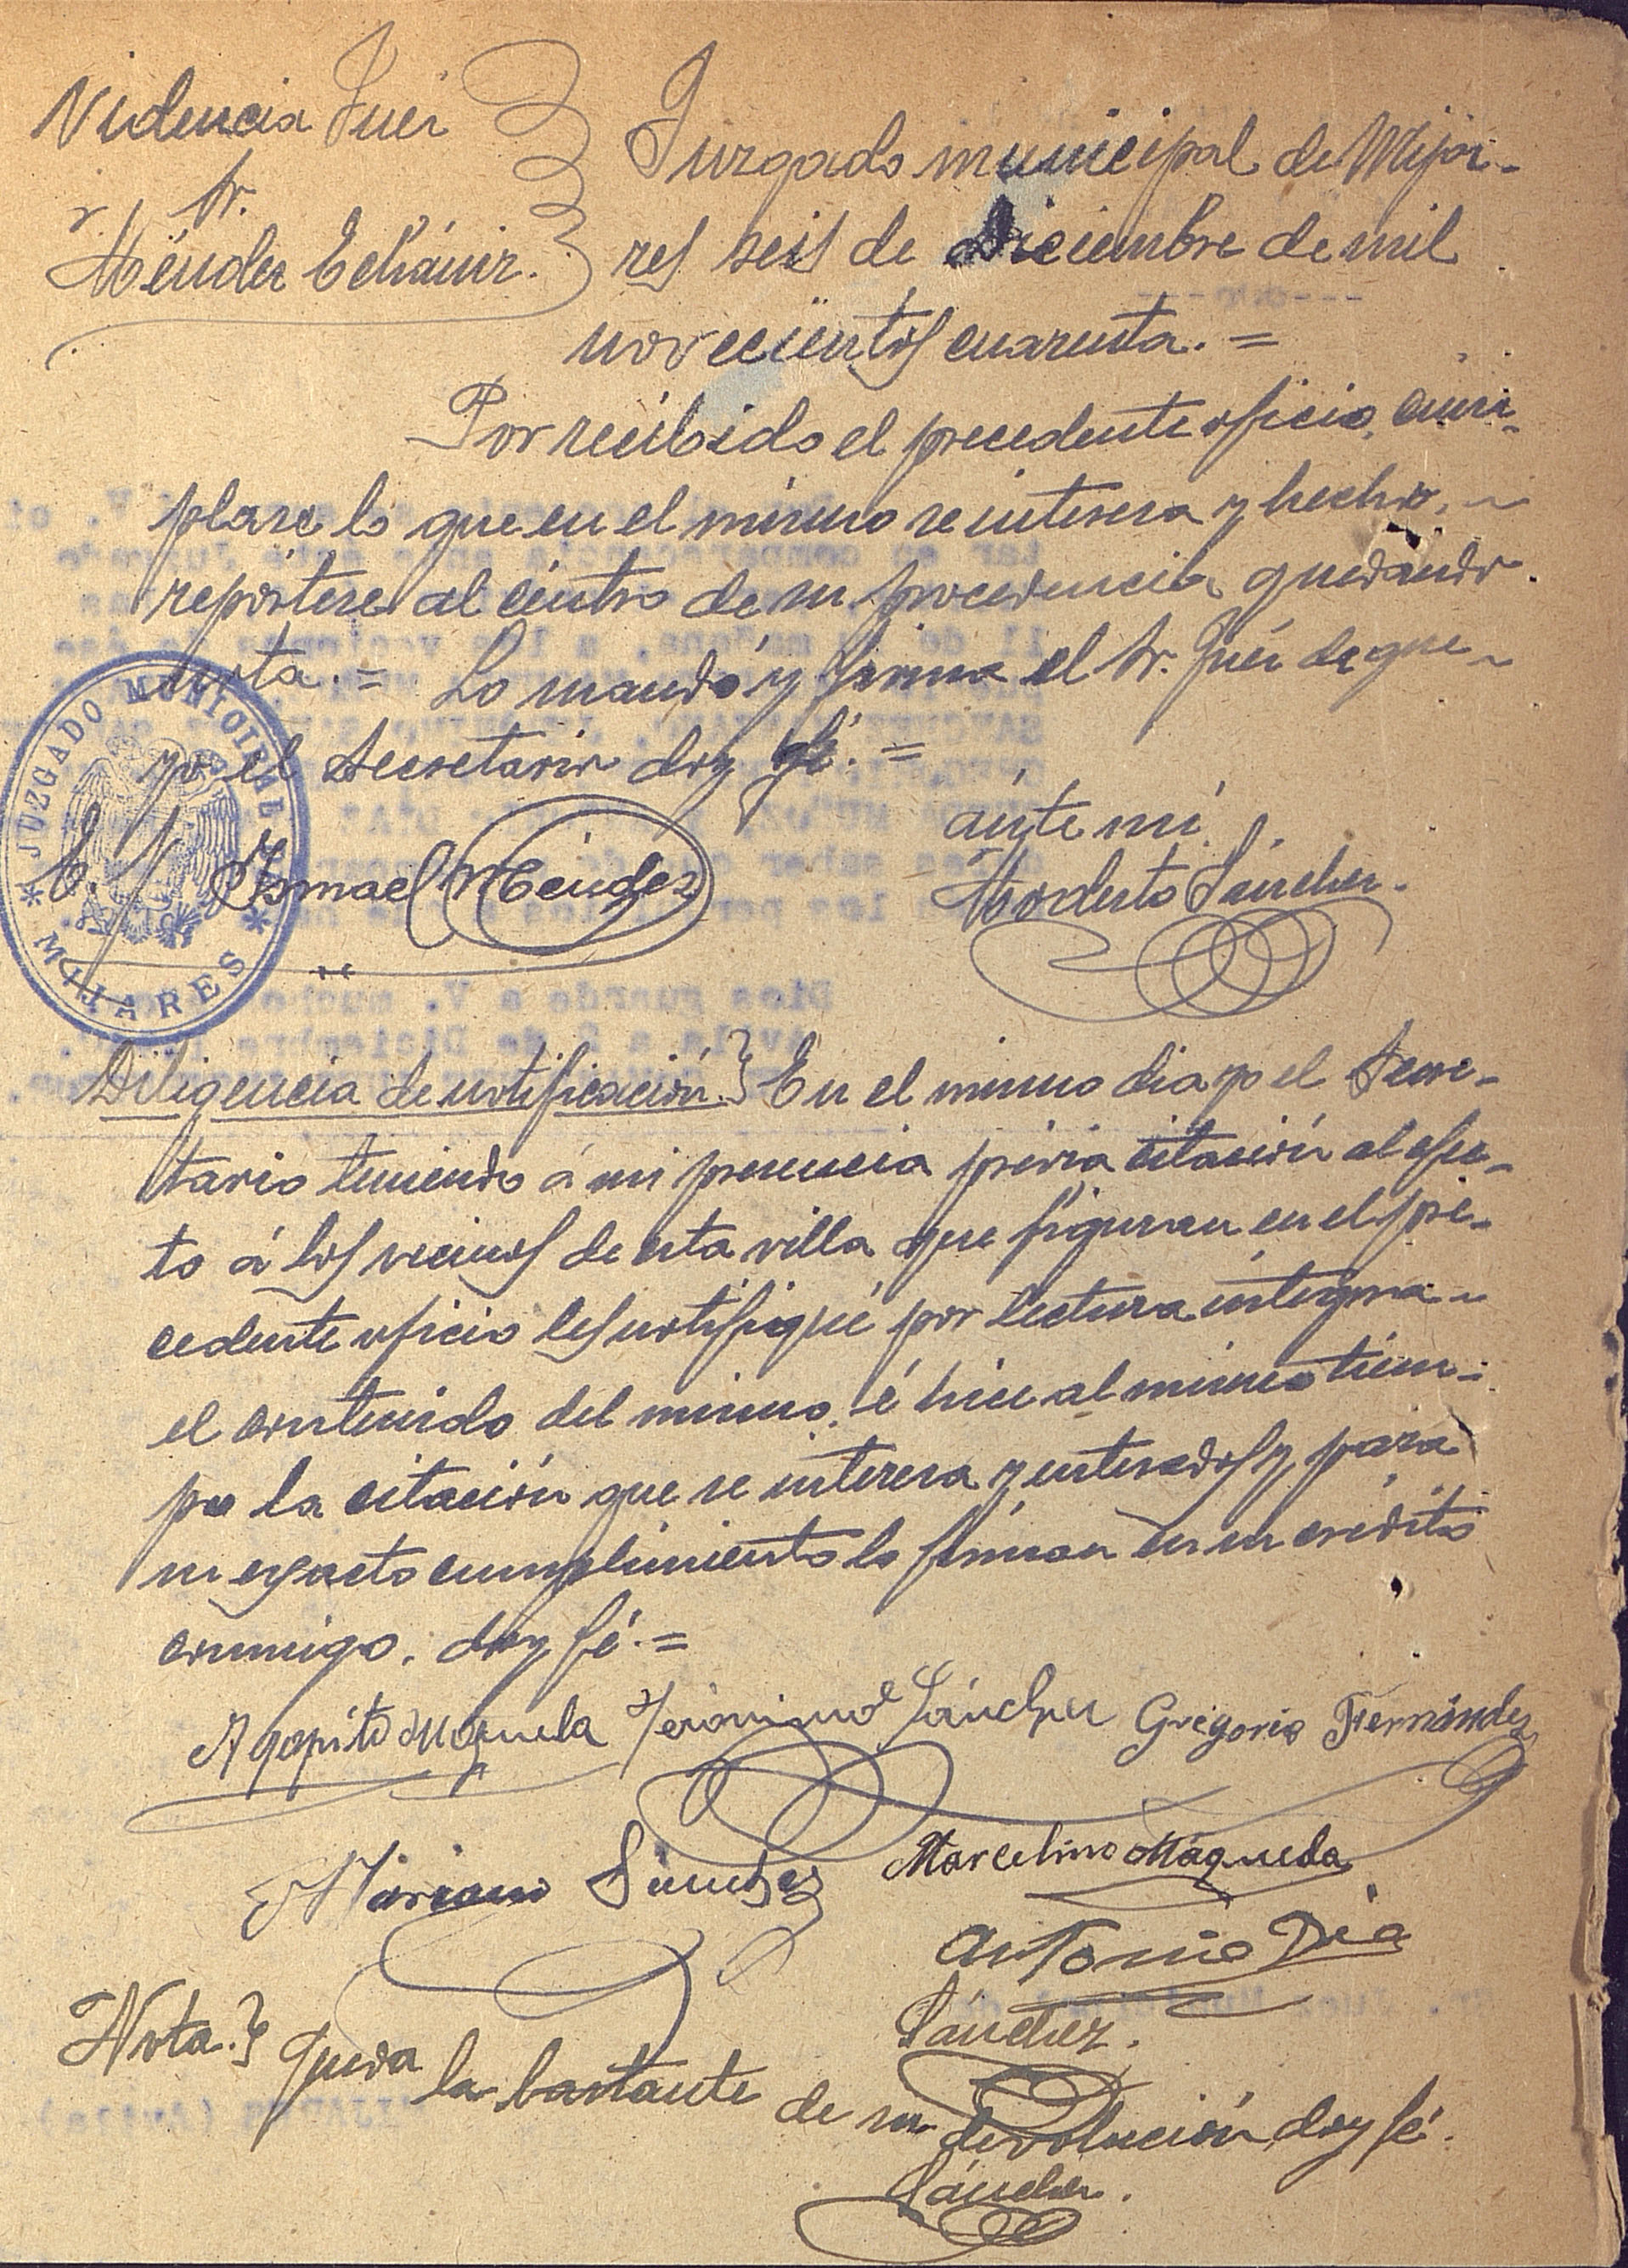 Videncia Juez
Sr.
Méndez Echániz.
Juzgado municipal de Mija-
res seis de Diciembre de mil
novecientos cuarenta. =
Por recibido el precedente oficio, cum-
plase lo que en el mismo se interesa y hecho,
repórtese al centro de su procedencia quedando
nota. = Lo mandó y firma el Sr. Juez de que
yo el Secretario doy fé. =
ánte mí
E. J. Ismael Méndez
Modesto Sánchez.
JUZGADO MUNICIPAL
MIJARES
Diligencia de notificación.} En el mismo dia yo el Secre-
tario teniendo á mi presencia prévia citación al efec-
to á los vecinos de esta villa que figuran en el pre-
cedente oficio les notifiqué por lectura integra
el contenido del mismo, é hice al mismo tiem-
po la citación que se interesa y enterados y para
su exacto cumplimiento lo firman en su crédito
conmigo, doy fé. =
Agapito Maqueda Jerónimo Sánchez Gregorio Fernández
Mariano Sánchez Marcelino Maqueda
Antonio Dia
Sánchez.
Nota.} Queda la bastante de su devolución doy fé.
Sánchez.